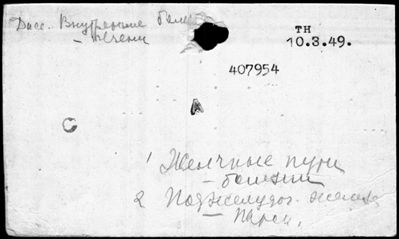 Дисс. Внутренние боле
– печени
ТН
10.3.49.
407954
А
1 Желчные пути
– болезни
2 Поджелудоч. железа